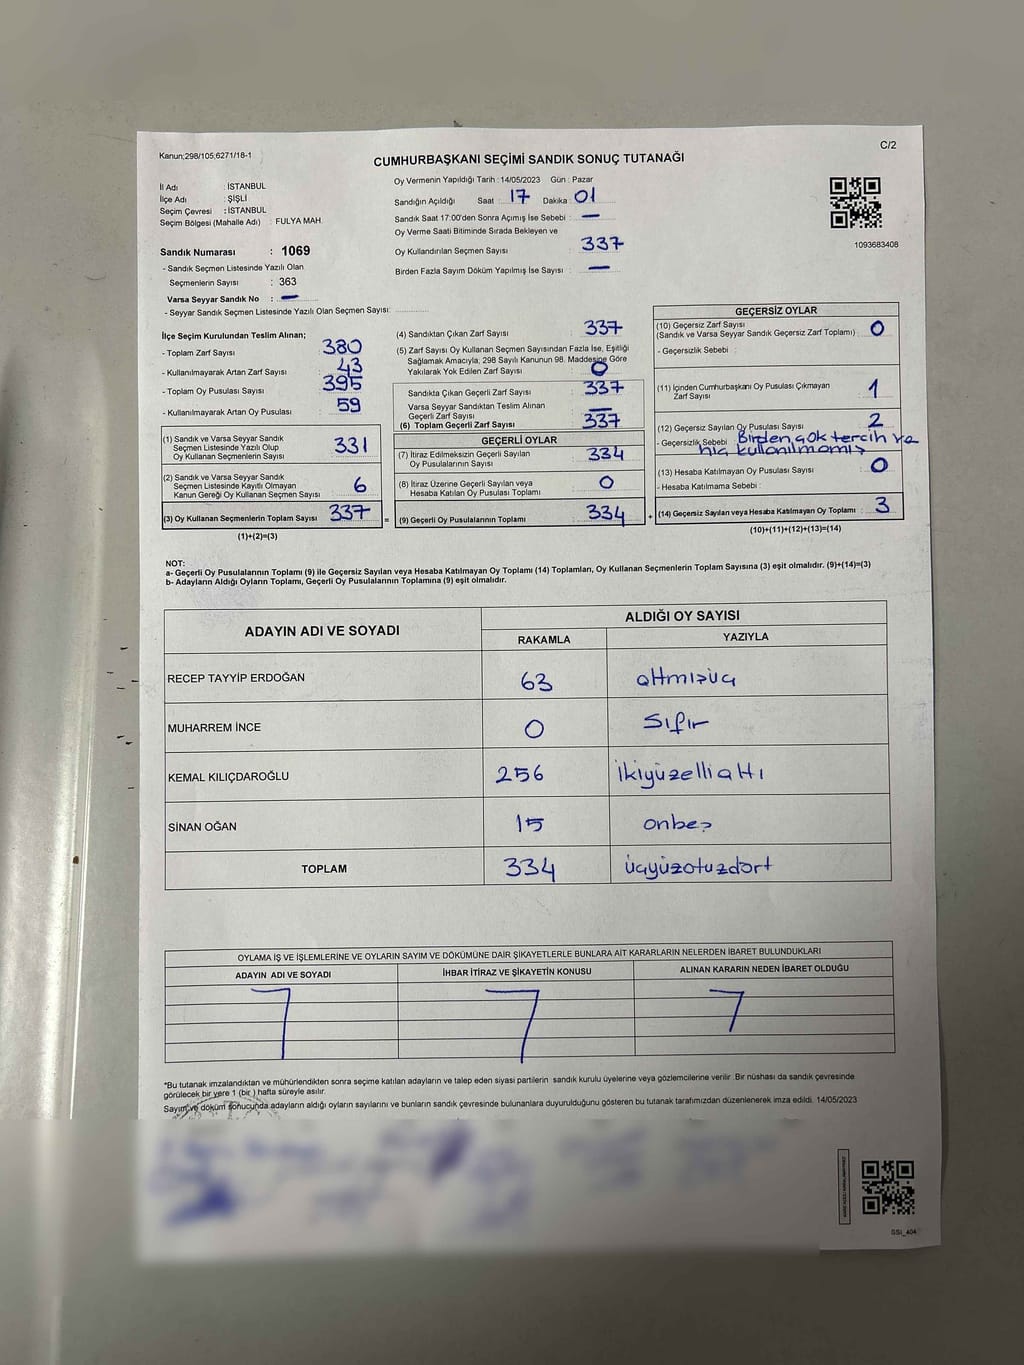 Kanun;298/105;6271/18-1
C/2
CUMHURBAŞKANI SEÇİMİ SANDIK SONUÇ TUTANAĞI
İl Adı : İSTANBUL
İlçe Adı : ŞİŞLİ
Seçim Çevresi : İSTANBUL
Seçim Bölgesi (Mahalle Adı) : FULYA MAH.
Sandık Numarası : 1069
- Sandık Seçmen Listesinde Yazılı Olan
Seçmenlerin Sayısı : 363
Varsa Seyyar Sandık No : —
- Seyyar Sandık Seçmen Listesinde Yazılı Olan Seçmen Sayısı:
Oy Vermenin Yapıldığı Tarih : 14/05/2023 Gün : Pazar
Sandığın Açıldığı Saat : 17 Dakika : 01
Sandık Saat 17:00'den Sonra Açımış İse Sebebi : —
Oy Verme Saati Bitiminde Sırada Bekleyen ve
Oy Kullandırılan Seçmen Sayısı : 337
Birden Fazla Sayım Döküm Yapılmış İse Sayısı : —
1093683408
İlçe Seçim Kurulundan Teslim Alınan;
- Toplam Zarf Sayısı : 380
- Kullanılmayarak Artan Zarf Sayısı : 43
- Toplam Oy Pusulası Sayısı : 395
- Kullanılmayarak Artan Oy Pusulası : 59
(1) Sandık ve Varsa Seyyar Sandık
Seçmen Listesinde Yazılı Olup
Oy Kullanan Seçmenlerin Sayısı : 331
(2) Sandık ve Varsa Seyyar Sandık
Seçmen Listesinde Kayıtlı Olmayan
Kanun Gereği Oy Kullanan Seçmen Sayısı : 6
(3) Oy Kullanan Seçmenlerin Toplam Sayısı : 337
(1)+(2)=(3)
=
(4) Sandıktan Çıkan Zarf Sayısı : 337
(5) Zarf Sayısı Oy Kullanan Seçmen Sayısından Fazla İse, Eşitliği
Sağlamak Amacıyla; 298 Sayılı Kanunun 98. Maddesine Göre
Yakılarak Yok Edilen Zarf Sayısı : 0
Sandıkta Çıkan Geçerli Zarf Sayısı : 337
Varsa Seyyar Sandıktan Teslim Alınan
Geçerli Zarf Sayısı : —
(6) Toplam Geçerli Zarf Sayısı : 337
GEÇERLİ OYLAR
(7) İtiraz Edilmeksizin Geçerli Sayılan
Oy Pusulalarının Sayısı : 334
(8) İtiraz Üzerine Geçerli Sayılan veya
Hesaba Katılan Oy Pusulası Toplamı : 0
(9) Geçerli Oy Pusulalarının Toplamı : 334
+
GEÇERSİZ OYLAR
(10) Geçersiz Zarf Sayısı
(Sandık ve Varsa Seyyar Sandık Geçersiz Zarf Toplamı) : 0
- Geçersizlik Sebebi :
(11) İçinden Cumhurbaşkanı Oy Pusulası Çıkmayan
Zarf Sayısı : 1
(12) Geçersiz Sayılan Oy Pusulası Sayısı : 2
- Geçersizlik Sebebi : Birden çok tercih ve
hiç kullanılmamış
(13) Hesaba Katılmayan Oy Pusulası Sayısı : 0
- Hesaba Katılmama Sebebi :
(14) Geçersiz Sayılan veya Hesaba Katılmayan Oy Toplamı : 3
(10)+(11)+(12)+(13)=(14)
NOT:
a- Geçerli Oy Pusulalarının Toplamı (9) ile Geçersiz Sayılan veya Hesaba Katılmayan Oy Toplamı (14) Toplamları, Oy Kullanan Seçmenlerin Toplam Sayısına (3) eşit olmalıdır. (9)+(14)=(3)
b- Adayların Aldığı Oyların Toplamı, Geçerli Oy Pusulalarının Toplamına (9) eşit olmalıdır.
ADAYIN ADI VE SOYADI
ALDIĞI OY SAYISI
RAKAMLA YAZIYLA
RECEP TAYYİP ERDOĞAN 63 altmışüç
MUHARREM İNCE 0 Sıfır
KEMAL KILIÇDAROĞLU 256 ikiyüzellialtı
SİNAN OĞAN 15 onbeş
TOPLAM 334 üçyüzotuzdört
OYLAMA İŞ VE İŞLEMLERİNE VE OYLARIN SAYIM VE DÖKÜMÜNE DAİR ŞİKAYETLERLE BUNLARA AİT KARARLARIN NELERDEN İBARET BULUNDUKLARI
ADAYIN ADI VE SOYADI İHBAR İTİRAZ VE ŞİKAYETİN KONUSU ALINAN KARARIN NEDEN İBARET OLDUĞU
*Bu tutanak imzalandıktan ve mühürlendikten sonra seçime katılan adayların ve talep eden siyasi partilerin sandık kurulu üyelerine veya gözlemcilerine verilir. Bir nüshası da sandık çevresinde
görülecek bir yere 1 (bir ) hafta süreyle asılır.
Sayım ve döküm sonucunda adayların aldığı oyların sayılarını ve bunların sandık çevresinde bulunanlara duyurulduğunu gösteren bu tutanak tarafımızdan düzenlenerek imza edildi. 14/05/2023
GSI_404